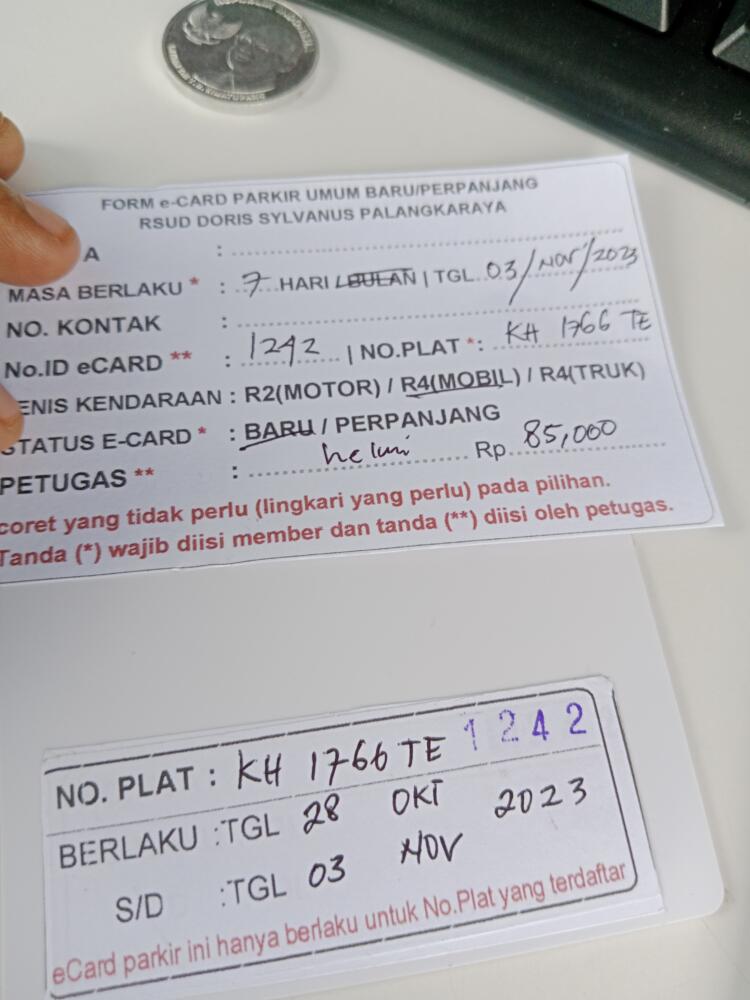 FORM e-CARD PARKIR UMUM BARU/PERPANJANG
RSUD DORIS SYLVANUS PALANGKARAYA
A :
MASA BERLAKU * : 7 HARI / BULAN | TGL. 03/NOV/2023
NO. KONTAK :
No.ID eCARD ** : 1242 | NO.PLAT *: KH 1766 TE
ENIS KENDARAAN : R2(MOTOR) / R4(MOBIL) / R4(TRUK)
STATUS E-CARD * : BARU / PERPANJANG
PETUGAS ** : Rp. 85,000
coret yang tidak perlu (lingkari yang perlu) pada pilihan.
Tanda (*) wajib diisi member dan tanda (**) diisi oleh petugas.
NO. PLAT : KH 1766 TE 1242
BERLAKU :TGL 28 OKT 2023
S/D :TGL 03 NOV
eCard parkir ini hanya berlaku untuk No.Plat yang terdaftar